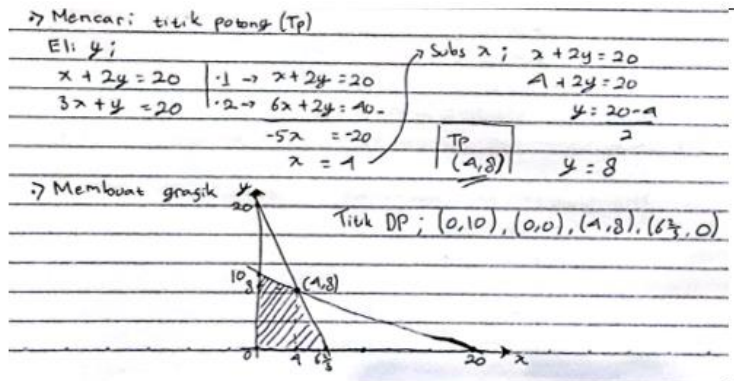 •> Mencari titik potong (Tp)
Eli y ;
x + 2y = 20 | ·1 → x + 2y = 20
3x + y = 20 | ·2 → 6x + 2y = 40 -
-5x = -20
x = 4
Subs x ; x + 2y = 20
4 + 2y = 20
y = 20-4
2
y = 8
Tp
(4,8)
•> Membuat grafik
Titik DP ; (0,10), (0,0), (4,8), (6 2/3, 0)
y
20
10
8
(4,8)
0 4 6 2/3 20 x